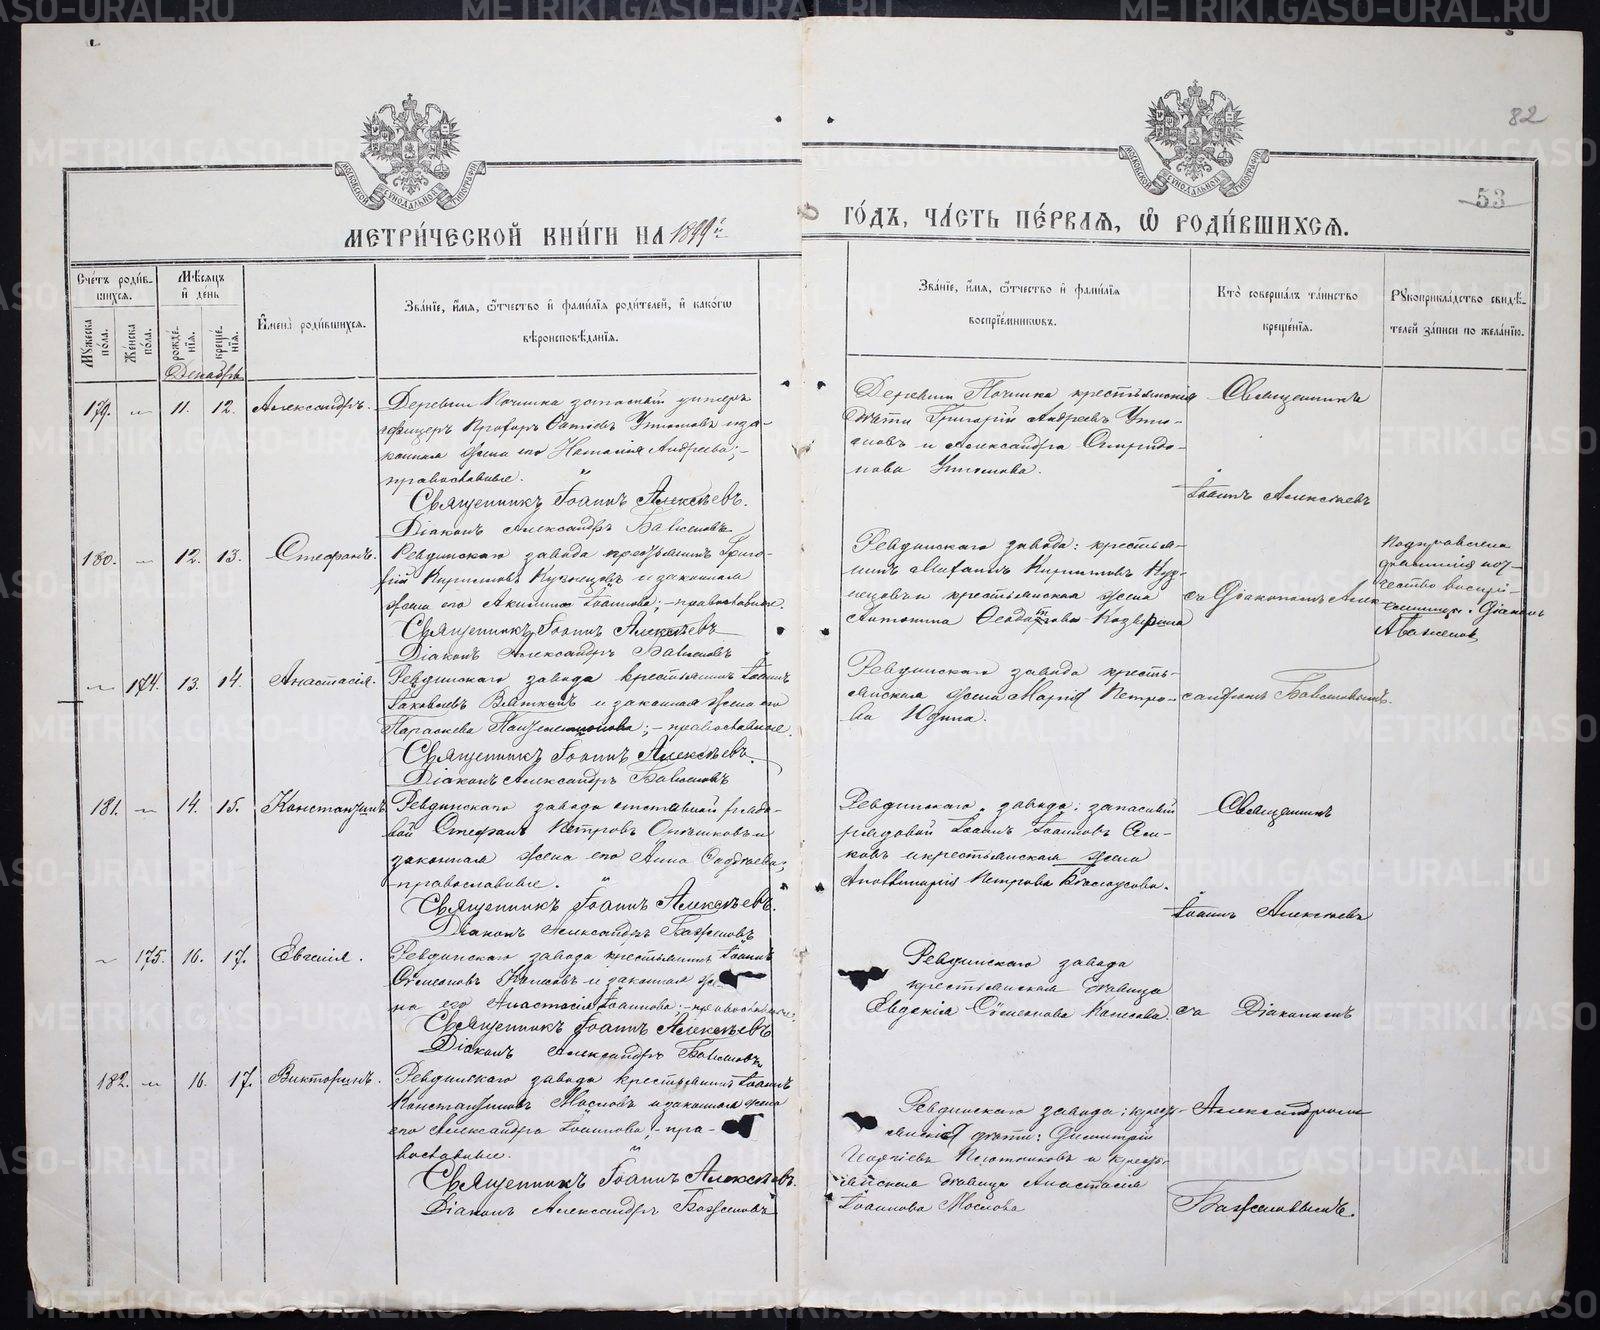 METRIKI.GASO-URAL.RU
82
53
МЕТРИ́ЧЕСКОЙ КНИ́ГИ НА 1899й
ГО́ДЪ, ЧА́СТЬ ПЕ́РВАЯ, Ѿ РОДИ́ВШИХСЯ.
Сче́тъ роди́в-
шихся.
Му́жеска
по́ла.
Же́нска
по́ла.
Мѣсяцъ
и҆ де́нь
рожде́-
нїя.
креще́-
нїя.
Декабрь
И҆мена̀ роди́вшихся.
Зва́нїе, и҆́мя, ѻ҆́тчество и҆ фами́лїя роди́телей, и҆ како́гѡ
вѣроисповѣ́данїя.
Зва́нїе, и҆́мя, ѻ҆́тчество и҆ фами́лїя
воспрїе́мниковъ.
Кто̀ соверша́лъ та́инство
креще́нїя.
Рꙋкоприкла́дство свидѣ́-
телей за́писи по жела́нїю.
179. — 11. 12. Александръ.
Деревни Починка запасный унтеръ
офицеръ Утюмовъ и за-
конная жена его Наталія Андреева; —
православные.
Священникъ Іоаннъ Алексѣевъ.
Діаконъ Александръ Баженовъ
Деревни Починка крестьянскія
дѣти Григорій Андреевъ Утю-
мовъ и Александра Спиридо-
нова Утюмова.
Священникъ
Іоаннъ Алексѣевъ
180. — 12. 13. Стефанъ.
Ревдинскаго завода крестьянинъ Григо-
рій Кириловъ Кузнецовъ и законная
жена его Акилина Іоаннова; — православные.
Священникъ Іоаннъ Алексѣевъ
Діаконъ Александръ Баженовъ
Ревдинскаго завода: крестья-
нинъ Кириловъ Куз-
нецовъ и крестьянская жена
Антонина
съ Діакономъ Алек-
Діаконъ
А Баженовъ
— 174. 13. 14. Анастасія.
Ревдинскаго завода крестьянинъ Іоаннъ
Іаковлевъ Вяткинъ и законная жена его
Параскева; — православные.
Священникъ Іоаннъ Алексѣевъ.
Діаконъ Александръ Баженовъ
Ревдинскаго завода кресть-
янская жена Марія Петро-
ва Юдина.
сандромъ Баженовымъ.
181. — 14. 15. Константинъ
Ревдинскаго завода отставной рядо-
вой Стефанъ Петровъ и
законная жена его Анна
православные.
Священникъ Іоаннъ Алексѣевъ.
Діаконъ Александръ Баженовъ
Ревдинскаго завода: запасный
рядовой Іоаннъ Іоанновъ
и крестьянская жена
Аполлинарія Петрова Бѣлоусова.
Священникъ
Іоаннъ Алексѣевъ
— 175. 16. 17. Евгенія.
Ревдинскаго завода крестьянинъ Іоаннъ
Семеновъ и законная же-
на его Анастасія Іоаннова; — православные.
Священникъ Іоаннъ Алексѣевъ
Діаконъ Александръ Баженовъ
Ревдинскаго завода
крестьянская дѣвица
Евдокія Семенова
съ Діакономъ
182. — 16. 17. Викторинъ.
Ревдинскаго завода крестьянинъ Іоаннъ
Константиновъ Масловъ и законная жена
его Александра Іоаннова; — пра-
вославные.
Священникъ Іоаннъ Алексѣевъ.
Діаконъ Александръ Баженовъ
Ревдинскаго завода: кресть-
янскія дѣти: Димитрій
Георгіевъ Плотниковъ и кресть-
янская дѣвица Анастасія
Іоаннова Маслова
Александромъ
Баженовымъ.